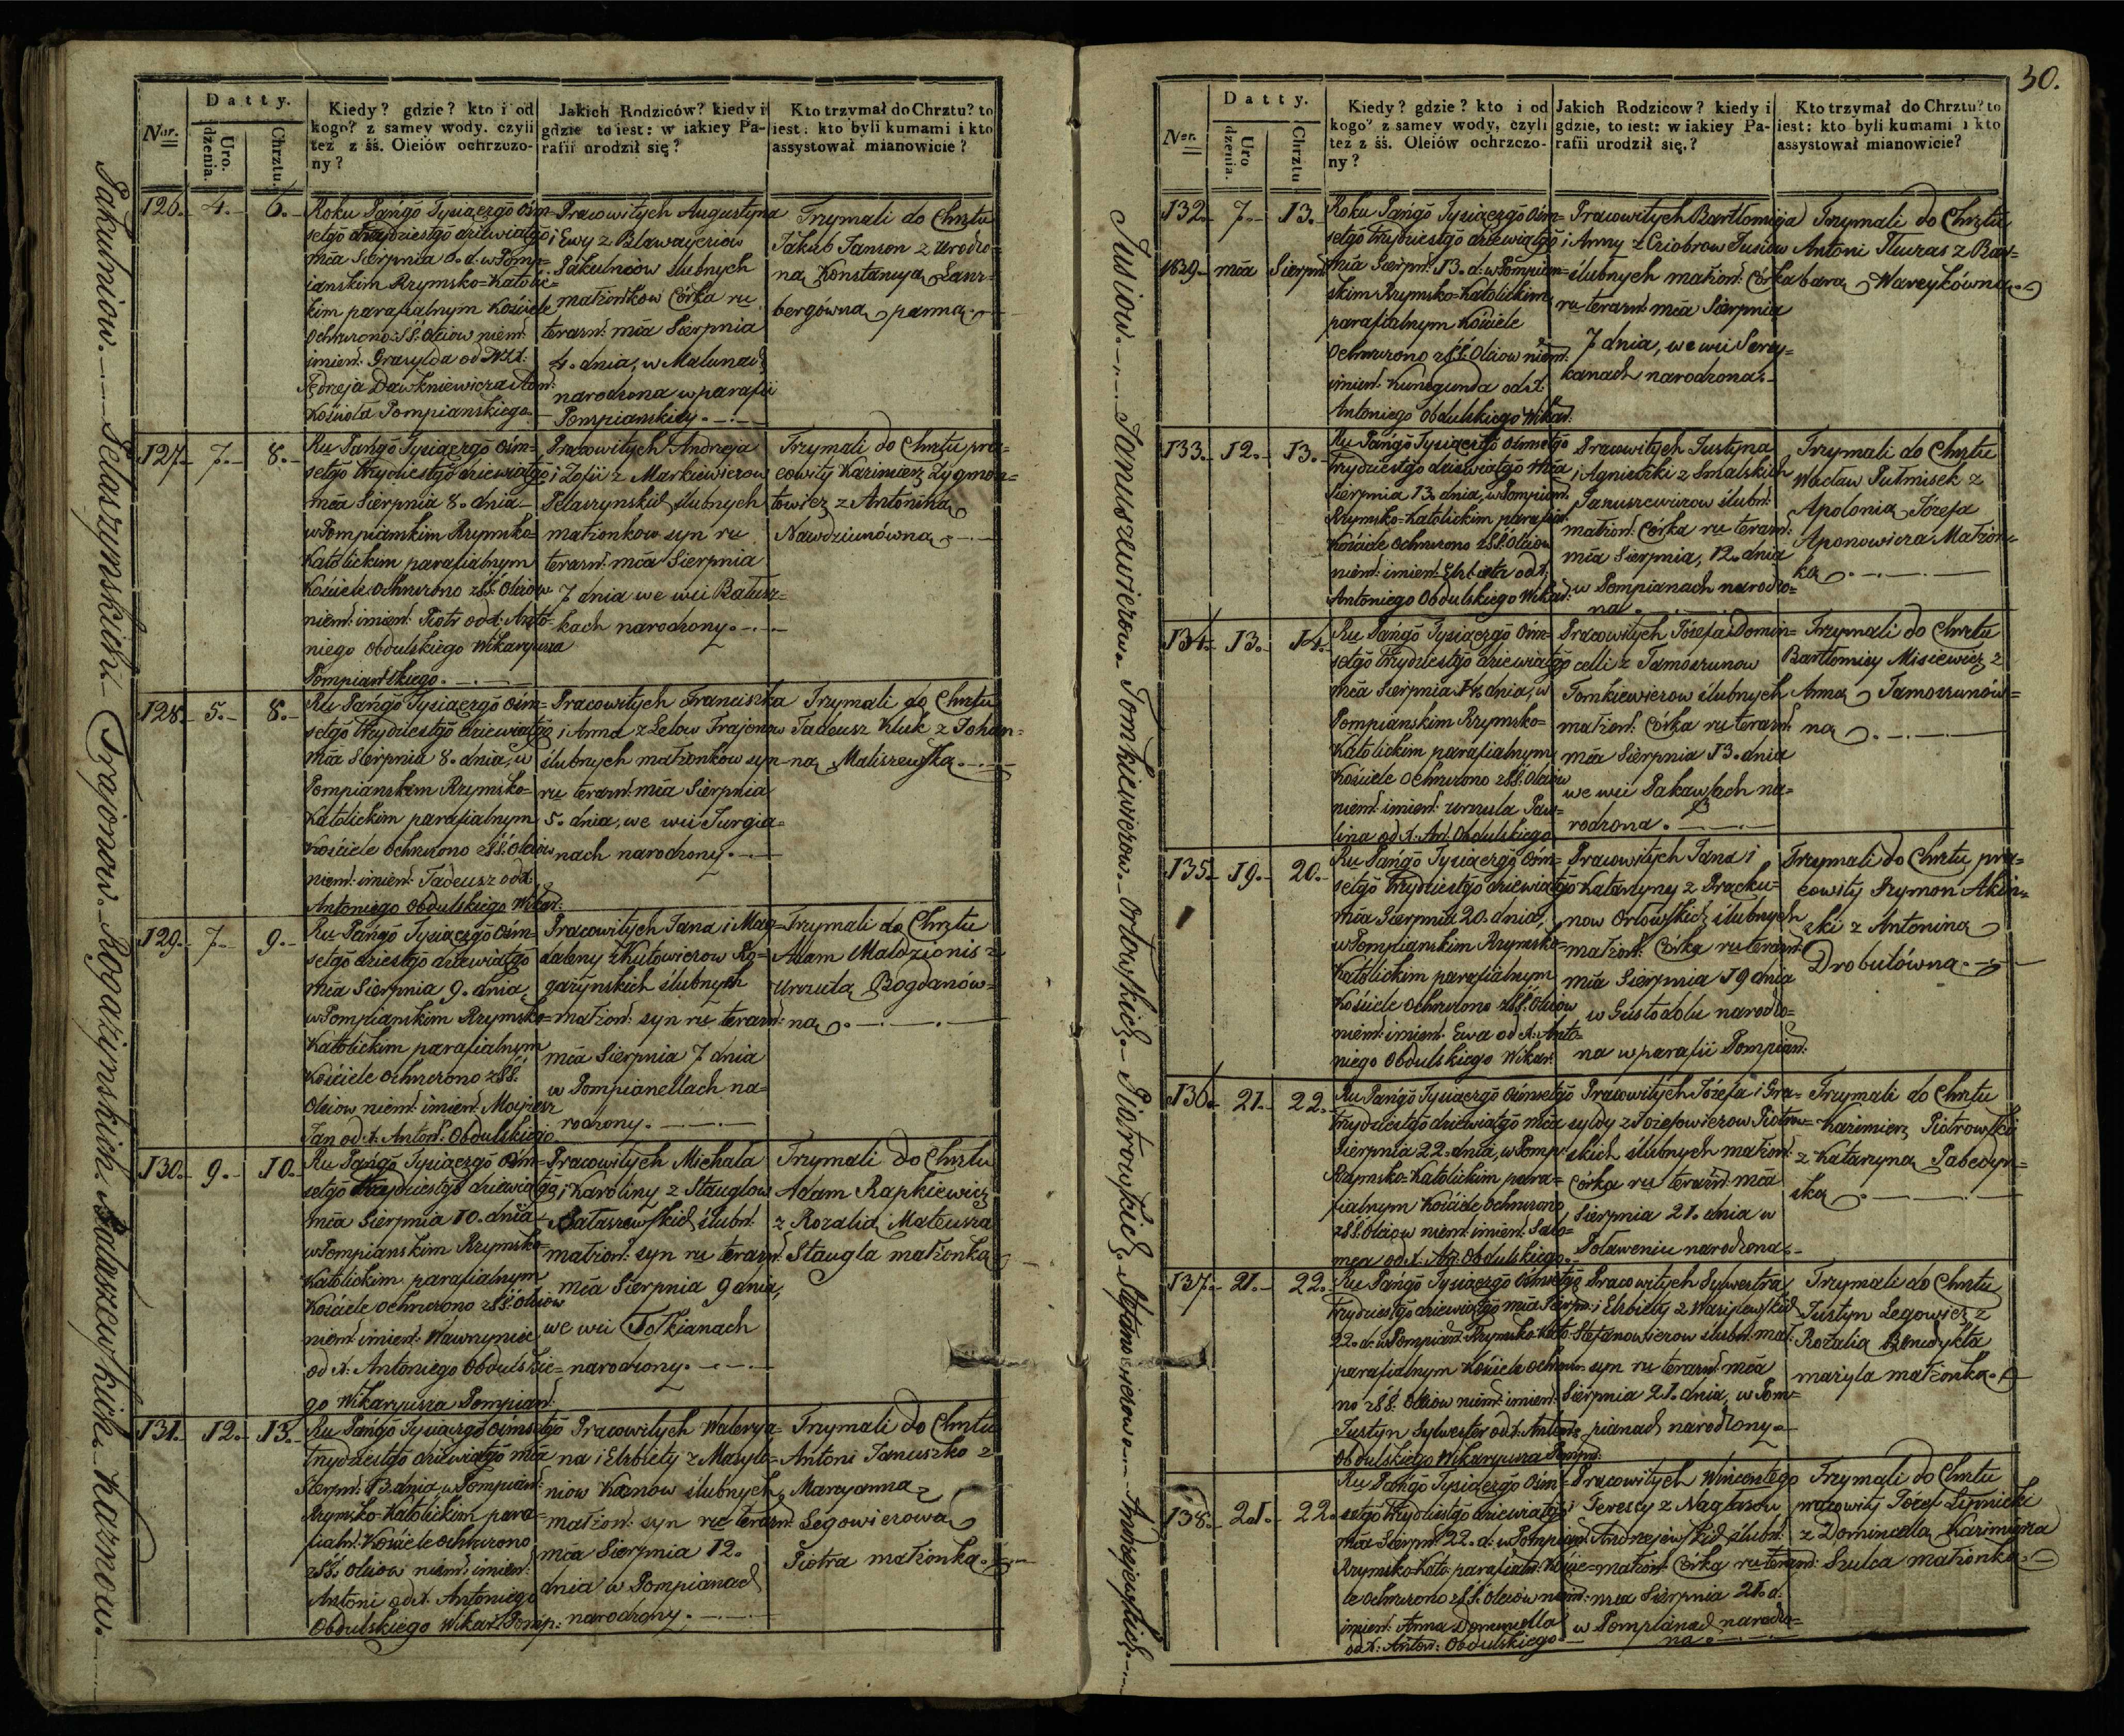 Datty.
Ner.
Uro.
dzenia.
Chrztu.
Kiedy? gdzie? kto i od
kogo? z samey wody. czyli
też z śś. Oleiów ochrzczo-
ny?
Jakich Rodziców? kiedy i
gdzie to iest: w iakiey Pa-
rafii urodził się?
Kto trzymał do Chrztu? to
iest: kto byli kumami i kto
assystował mianowicie?
Pakulniow. Pelaszynskich. Trajonow. Rogazynskich. Karnow.
126. 4. 6.
Roku Pańgo Tysiączgo Ośm-
setgo trzydziestgo dziewiątgo
mca Sierpnia 6. d. w Pomp-
ianskim Rzymsko-Katolic-
kim parafialnym Kościele
ochrzczono SS. Oleiow niem.
imien. Grasylda od
Jędrzeja Dawkniewicza
Kościoła Pompianskiego.
Pracowitych Augustyna
i Ewy z
Pakulniow ślubnych
małżonkow Córka ru
terazn. mca Sierpnia
4. dnia, w
narodzona w parafii
Pompianskiey.
Trzymali do Chrztu
Jakub Janson z urodzo-
na Konstancya
panna
127. 7. 8.
Ru Pańgo Tysiączgo Ośm-
setgo trzydziestgo dziewiątgo
mca Sierpnia 8. dnia
w Pompianskim Rzymsko-
Katolickim parafialnym
Kościele ochrzczono z SS. Oleiow
niem. imien. Piotr od X. Anto-
niego Obdulskiego Wikaryusza
Pompianskiego.
Pracowitych Andrzeja
i Zofii z Markiewiczow
Pelaszynskich ślubnych
małżonkow syn ru
terazn. mca Sierpnia
7 dnia we wsi Batusz-
kach narodzony.
Trzymali do Chrztu pra-
cowity Kazimierz Zygmon-
towicz z Antonina
Nawdziunówna
128. 5. 8.
Ru Pańgo Tysiączgo Ośm-
setgo trzydziestgo dziewiątgo
mca Sierpnia 8. dnia, w
Pompianskim Rzymsko-
Katolickim parafialnym
Kościele ochrzczono z SS. Oleiow
niem. imien. Tadeusz od X.
Antoniego Obdulskiego Wikar.
Pracowitych Franciszka
i Anna z Lelow Trajonow
ślubnych małżonkow syn
ru terazn. mca Sierpnia
5. dnia, we wsi Jurgia-
nach narodzony.
Trzymali do Chrztu
Tadeusz Kluk z Johan-
na Maliszewska
129. 7. 9.
Ru Pańgo Tysiączgo Ośm-
setgo dziestgo dziewiątgo
mca Sierpnia 9. dnia,
w Pompianskim Rzymsko-
Katolickim parafialnym
Kościele ochrzczono z SS.
Oleiow niem. imien. Moyżesz
Jan od X. Anton. Obdulskiego
Pracowitych Jana i Mag-
daleny z Kutowiczow Ro-
gażynskich ślubnych
małżon. syn ru terazn.
mca Sierpnia 7 dnia
w Pompianellach na-
rodzony.
Trzymali do Chrztu
Adam Maldzionis z
Urszula Bogdanów-
na
130. 9. 10.
Ru Pańgo Tysiączgo Ośm-
setgo trzydziestgo dziewiątgo
mca Sierpnia 10. dnia
w Pompianskim Rzymsko-
Katolickim parafialnym
Kościele ochrzczono z SS. Oleiow
niem. imien. Wawrzyniec
od X. Antoniego Obdulskie-
go Wikaryusza Pompian.
Pracowitych Michała
i Karoliny z Stauglow
ślubn.
małżon. syn ru terazn.
mca Sierpnia 9 dnia,
we wsi Tołkianach
narodzony.
Trzymali do Chrztu
Adam Rapkiewicz
z Rozalia Mateusza
Staugla małżonka
131. 12. 13.
Ru Pańgo Tysiączgo Ośmsetgo
trzydziestgo dziewiątgo mca
Sierpn. 13. dnia, w Pompian.
Rzymsko Katolickim para-
fialn. Kościele ochrzczono
z SS. Oleiow niem. imien.
Antoni od X. Antoniego
Obdulskiego Wikar. Pomp.
Pracowitych Walerya-
na i Elzbiety z Masyli-
niow Kanow ślubnych
małżon. syn ru terazn.
mca Sierpnia 12.
dnia w Pompianach
narodzony.
Trzymali do Chrztu
Antoni Januszko z
Maryanna
Segowiczowa
Piotra małżonka.
30.
Datty.
Ner.
Uro
dzenia.
Chrztu
Kiedy? gdzie? kto i od
kogo? z samey wody, czyli
też z śś. Oleiów ochrzczo-
ny?
Jakich Rodzicow? kiedy i
gdzie, to iest: w iakiey Pa-
rafii urodził się?
Kto trzymał do Chrztu? to
iest: kto byli kumami i kto
assystował mianowicie?
Jusiow. Januszewiczow. Tomkiewiczow. Orłowskich. Piatrowskich. Stefanowiczow. Andrzejewskich.
132. 7. 13.
1839. mca Sierpn.
Roku Pańgo Tysiączgo Ośm-
setgo trzydziestgo dziewiątgo
mca Sierpn. 13. d. w Pompian-
skim Rzymsko-Katolickim
parafialnym Kościele
ochrzczono z SS. Oleiow niem.
imien. Kunegunda od X.
Antoniego Obdulskiego Wikar.
Pracowitych Bartłomieja
i Anny z Cziobrow Jusiow
ślubnych małżon. Córka
ru terazn. mca Sierpnia
7 dnia, we wsi Serey-
kanach narodzona.
Trzymali do Chrztu
Antoni Tluras z Bar-
bara Wareykówna.
133. 12. 13.
Ru Pańgo Tysiączgo Ośmsetgo
trzydziestgo dziewiątgo mca
Sierpnia 13. dnia, w Pompian.
Rzymsko-Katolickim parafial.
Kościele ochrzczono z SS. Oleiow
niem. imien. Elzbieta od X.
Antoniego Obdulskiego Wikar.
Pracowitych Justyna
i Agnieszki z Smalskich
Januszewiczow ślubn.
małżon. Córka ru terazn.
mca Sierpnia, 12. dnia
w Pompianach narodzo-
na.
Trzymali do Chrztu
Wacław Putmisek z
Apolonia Józefa
Aponowicza Małżon-
ka
134. 13. 14.
Ru Pańgo Tysiączgo Ośm-
setgo trzydziestgo dziewiątgo
mca Sierpnia 14. dnia, w
Pompianskim Rzymsko-
Katolickim parafialnym
Kościele ochrzczono z SS. Oleiow
niem. imien. Urszula Pau-
lina od X. An. Obdulskiego
Pracowitych Józefa i Domin-
celli z Tamoszunow
Tomkiewiczow ślubnych
małżon. Córka ru terazn.
mca Sierpnia 13. dnia
we wsi Pakawsach na-
rodzona.
Trzymali do Chrztu
Bartłomiey Misiewicz z
Anna Tamoszunów-
na
135. 19. 20.
Ru Pańgo Tysiączgo Ośm-
setgo trzydziestgo dziewiątgo
mca Sierpnia 20. dnia,
w Pompianskim Rzymsko-
Katolickim parafialnym
Kościele ochrzczono z SS. Oleiow
niem. imien. Ewa od X. Anto-
niego Obdulskiego Wikar.
Pracowitych Jana i
Katarzyny z Pracku-
now Orłowskich ślubnych
małżon. Córka ru terazn.
mca Sierpnia 19 dnia
w Gustodolu narodzo-
na w parafii Pompian.
Trzymali do Chrztu pra-
cowity Szymon Akin-
ski z Antonina
Drobutówna.
136. 21. 22.
Ru Pańgo Tysiączgo Ośmsetgo
trzydziestgo dziewiątgo mca
Sierpnia 22. dnia, w Pomp.
Rzymsko-Katolickim para-
fialnym Kościele ochrzczono
z SS. Oleiow niem. imien. Salo-
mea od X. An. Obdulskiego.
Pracowitych Józefa i Gra-
syldy z Jozefowiczow Piotrow-
skich ślubnych małżon.
Córka ru terazn. mca
Sierpnia 21. dnia w
Poławeniu narodzona.
Trzymali do Chrztu
Kazimierz Piotrowski
z Katarzyna Pabedyn-
ska
137. 21. 22.
Ru Pańgo Tysiączgo Ośmsetgo
trzydziestgo dziewiątgo mca Sierpn.
22. d. w Pompian. Rzymsko-Kato.
parafialnym Kościele ochrzczo-
no z SS. Oleiow niem. imien.
Justyn Sylwester od X. Anton.
Obdulskiego Wikaryusza Pomp.
Pracowitych Sylwestra
i Elzbiety z Wasilewskich
Stefanowiczow ślubn. mał.
syn ru terazn. mca
Sierpnia 21. dnia, w Pom-
pianach narodzony.
Trzymali do Chrztu
Justyn Legowicz z
Rozalia Benedykta
maryla małżonka.
138. 21. 22.
Ru Pańgo Tysiączgo Ośm-
setgo trzydziestgo dziewiątgo
mca Sierpn. 22. d. w Pompian.
Rzymsko-Kato. parafialn. Koście-
le ochrzczono z SS. Oleiow niem.
imien. Anna Domincella
od X. Anton. Obdulskiego.
Pracowitych Wincentego
i Teressy z Naglisow
Andrzejewskich ślubn.
małżon. Córka ru terazn.
mca Sierpnia 21. d.
w Pompianach narodzo-
na.
Trzymali do Chrztu
pracowity Józef Lipnicki
z Domincela Kazimierza
Szulca małżonka.